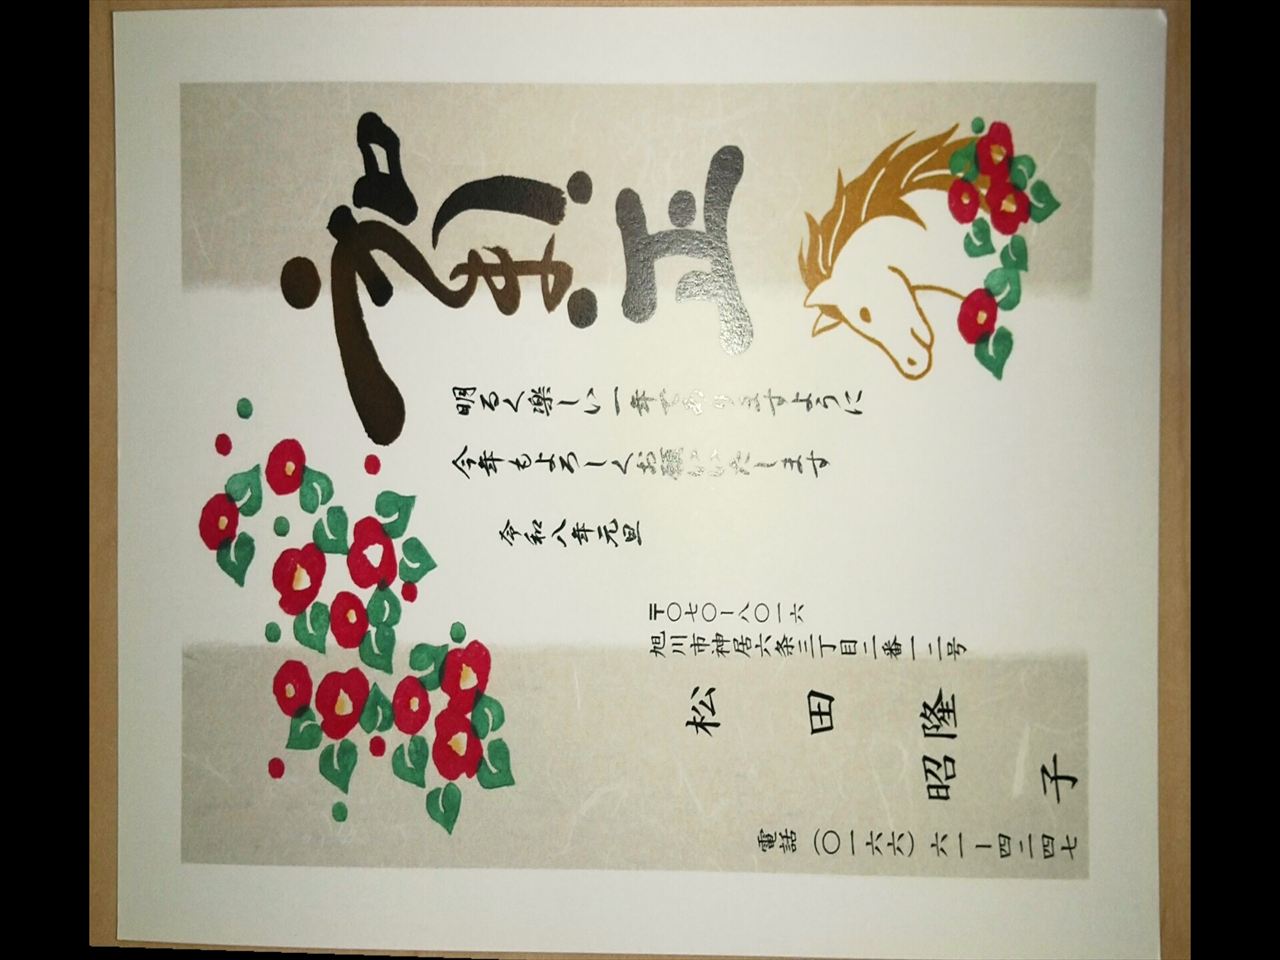 賀正
明るく楽しい一年でありますように
今年もよろしくお願いいたします
令和八年元旦
〒〇七〇-八〇一六
旭川市神居六条三丁目二番一二号
松田 隆
昭子
電話(〇一六六)六一-四二四七